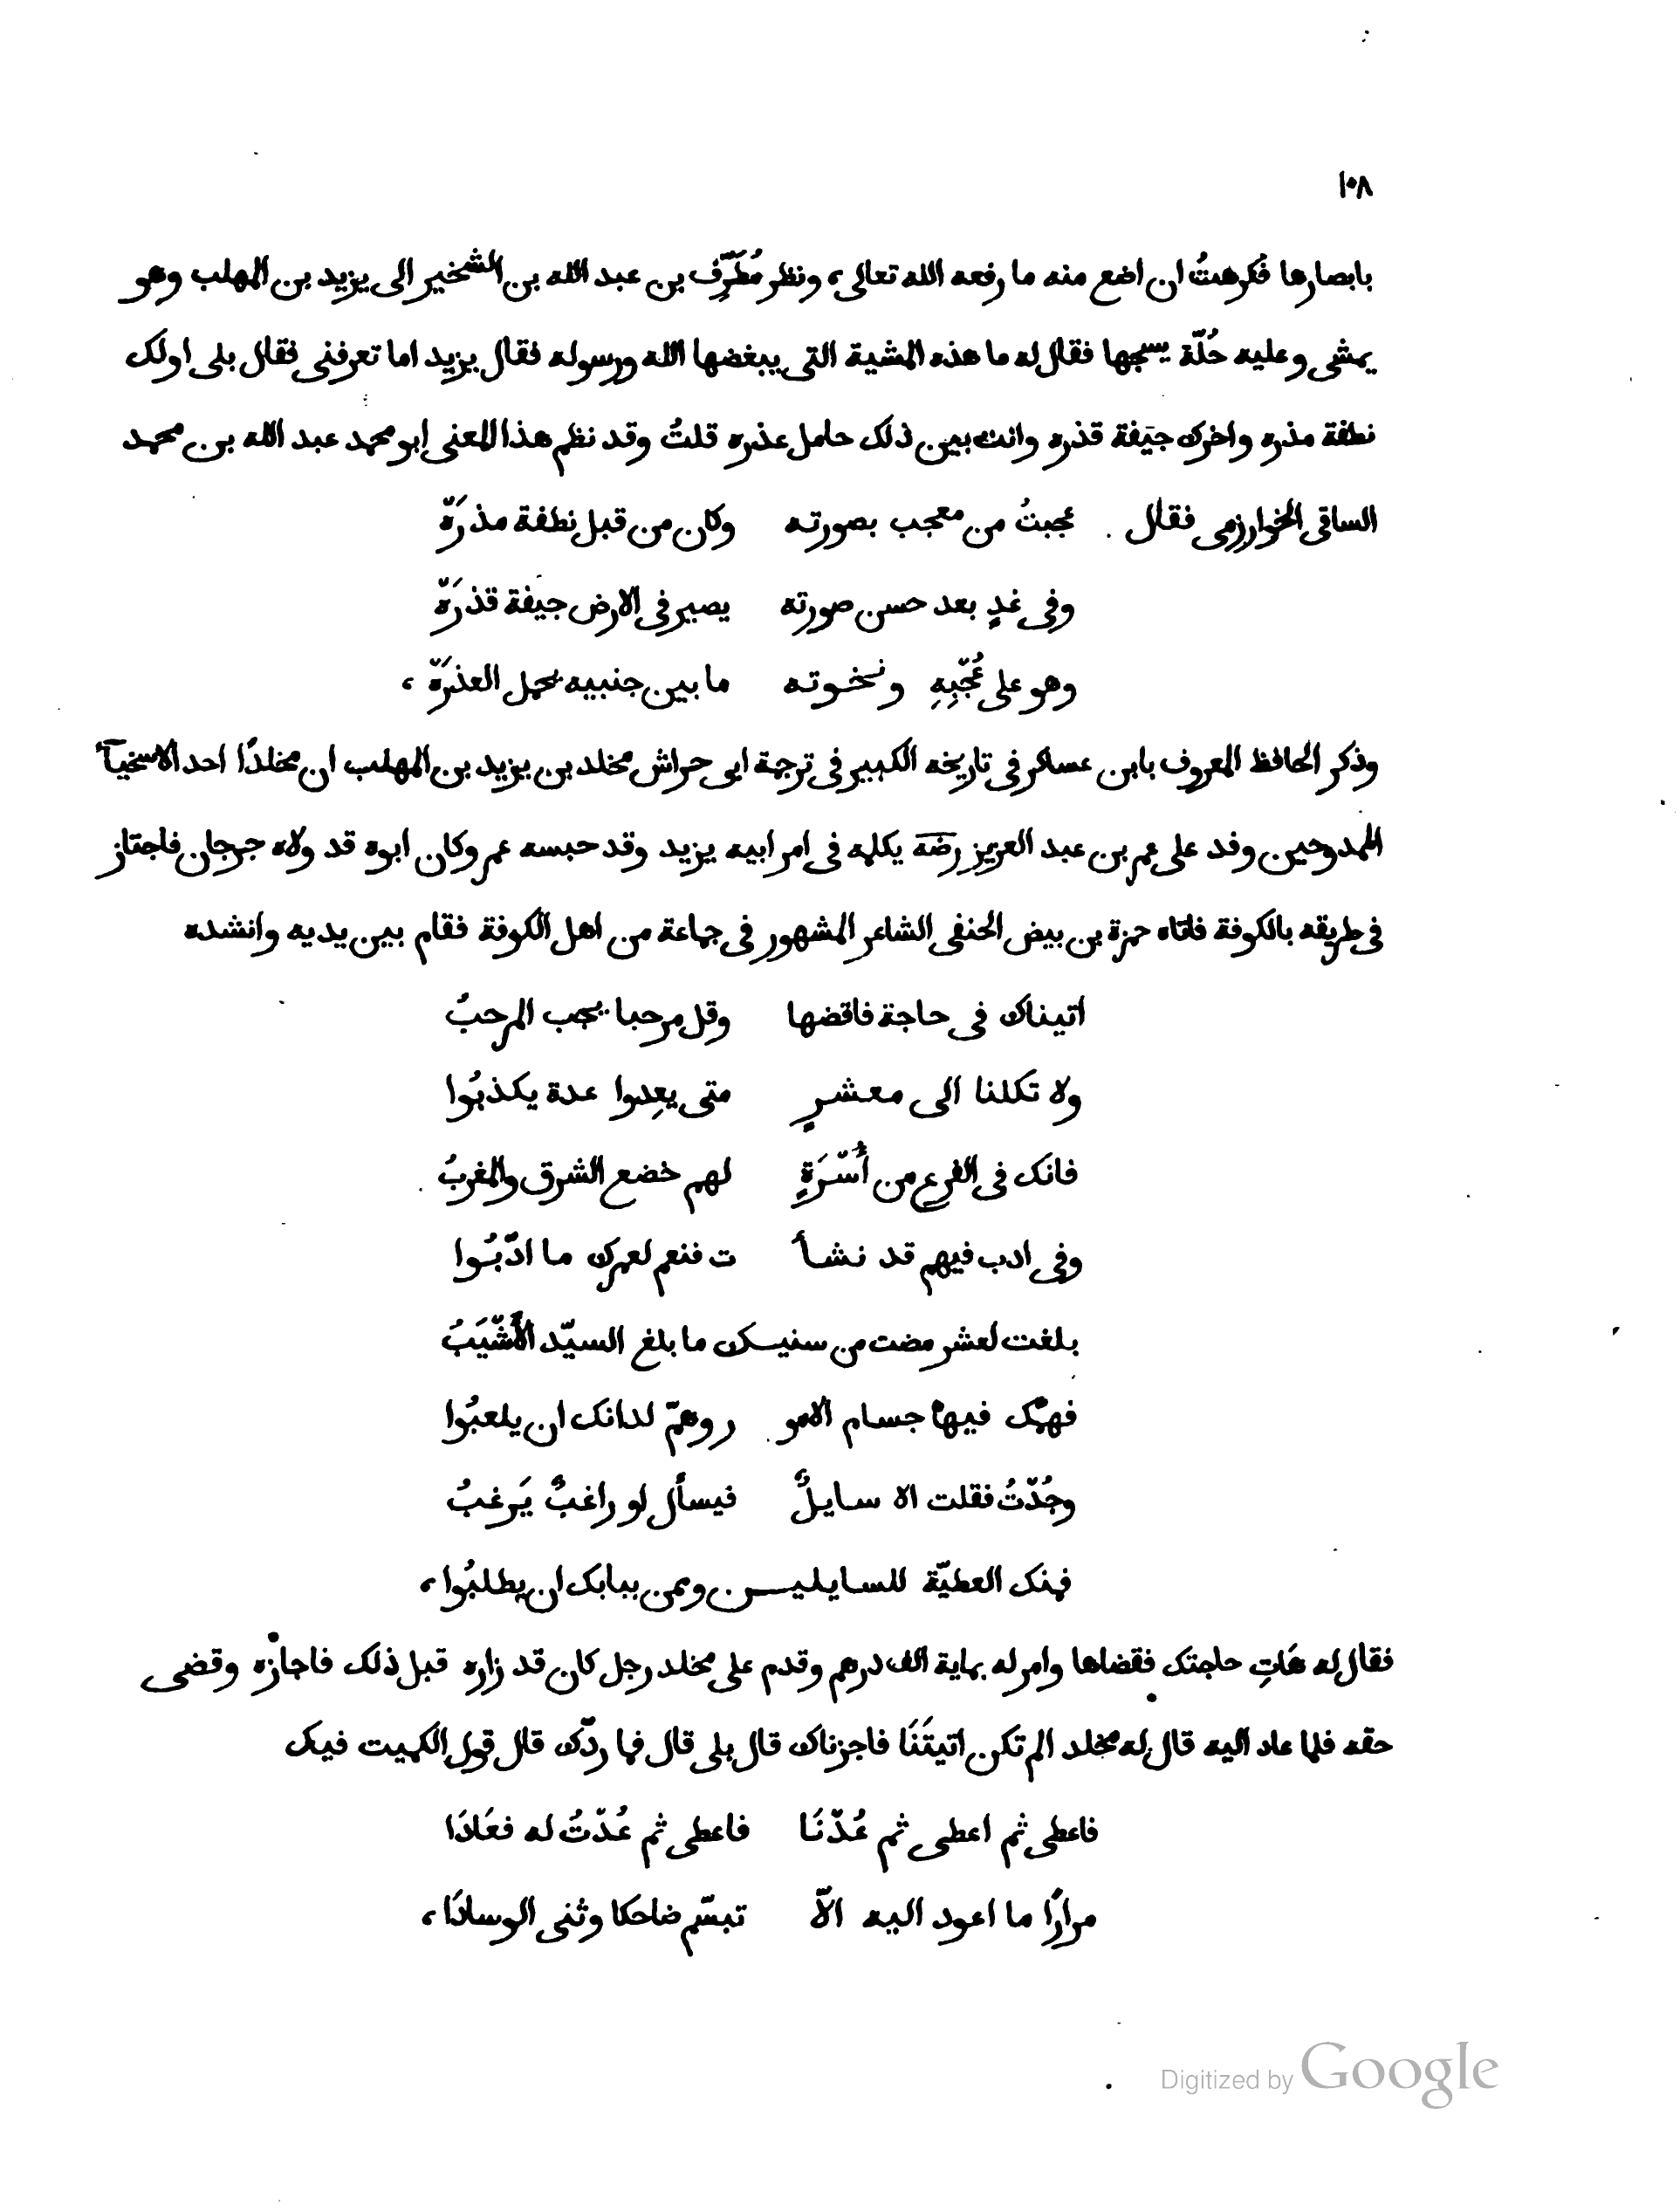 ١٠٨
بابصارها فكرهتُ ان اضع منه ما رفعه الله تعالى، ونظر مُطَرِّف بن عبد الله بن الشخير الى يزيد بن المهلب وهو
يمشى وعليه حُلّة يسحبها فقال له ما هذه المشية التى يبغضها الله ورسوله فقال يزيد اما تعرفنى فقال بلى اولك
نطفة مذره واخرك جيَفة قذره وانت بين ذلك حامل عذره قلتُ وقد نظم هذا المعنى ابو محمد عبد الله بن محمد
الساقى الخوارزمى فقال عجبتُ من معجب بصورته وكان من قبل نطفة مذرَهْ
وفى غدٍ بعد حسن صورته يصير فى الارض جيفة قذرَهْ
وهو على عُجْبِهِ ونخوته ما بين جنبيه يحمل العذرَهْ،
وذكر الحافظ المعروف بابن عساكر فى تاريخه الكبير فى ترجمة ابى حراش مخلد بن يزيد بن المهلب ان مخلدًا احد الاسخيآء
الممدوحين وفد على عمر بن عبد العزيز رضه يكلمه فى امر ابيه يزيد وقد حبسه عمر وكان ابوه قد ولاه جرجان فاجتاز
فى طريقه بالكوفة فاتاه حمزة بن بيض الحنفى الشاعر المشهور فى جماعة من اهل الكوفة فقام بين يديه وانشده
اتيناك فى حاجة فاقضها وقل مرحبا يجب المرحبُ
ولا تكلنا الى معشرٍ متى يعِدوا عدة يكذبُوا
فانك فى الفرع من أُسْرَةٍ لهم خضع الشرق والمغربُ
وفى ادب فيهم قد نشأ ت فنعم لعمرك ما ادّبُوا
بلغت لعشر مضت من سنيـك ما بلغ السيّد الأَشْيَبُ
فهمّك فيها جسام الامو ر وهمّ لداتك ان يلعبُوا
وجُدْتُ فقلت الا سايلٌ فيسأل او راغبٌ يَرغبُ
فمنك العطيّة للسايليـن وممن ببابك ان يطلبُوا،
فقال له هَاتِ حاجتك فقضاها وامر له بماية الف درهم وقدم على مخلد رجل كان قد زاره قبل ذلك فاجازه وقضى
حقه فلما عاد اليه قال له مخلد الم تكن اتيتَنَا فاجزناك قال بلى قال فما ردّك قال قول الكميت فيك
فاعطى ثم اعطى ثم عُدْنَا فاعطى ثم عُدْتُ له فعَادَا
مرارًا ما اعود اليه الّا تبسّم ضاحكا وثنى الوسادَا،
Digitized by Google